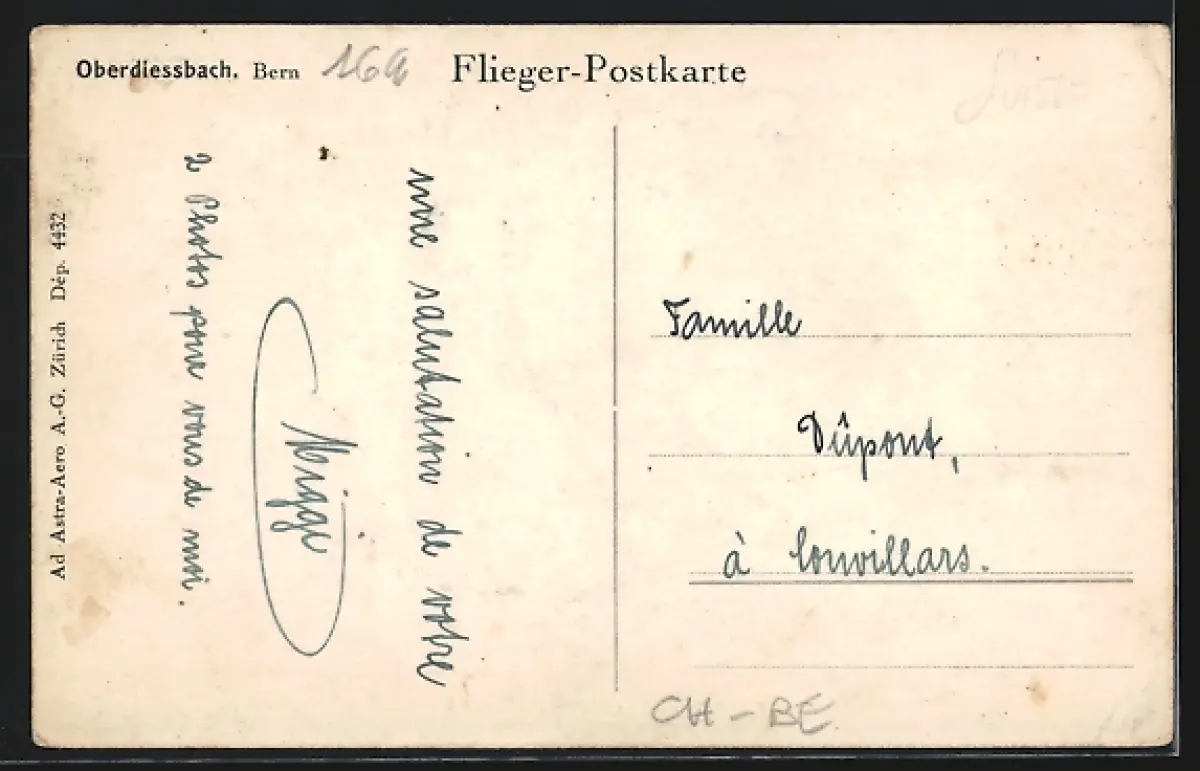 Oberdiessbach. Bern 169
Flieger-Postkarte
Ad Astra-Aero A.-G. Zürich Dép. 4432
une salutation de votre
2 Photos pour vous de moi.
Famille
Dûpont,
à Couvillars.
CH - BE